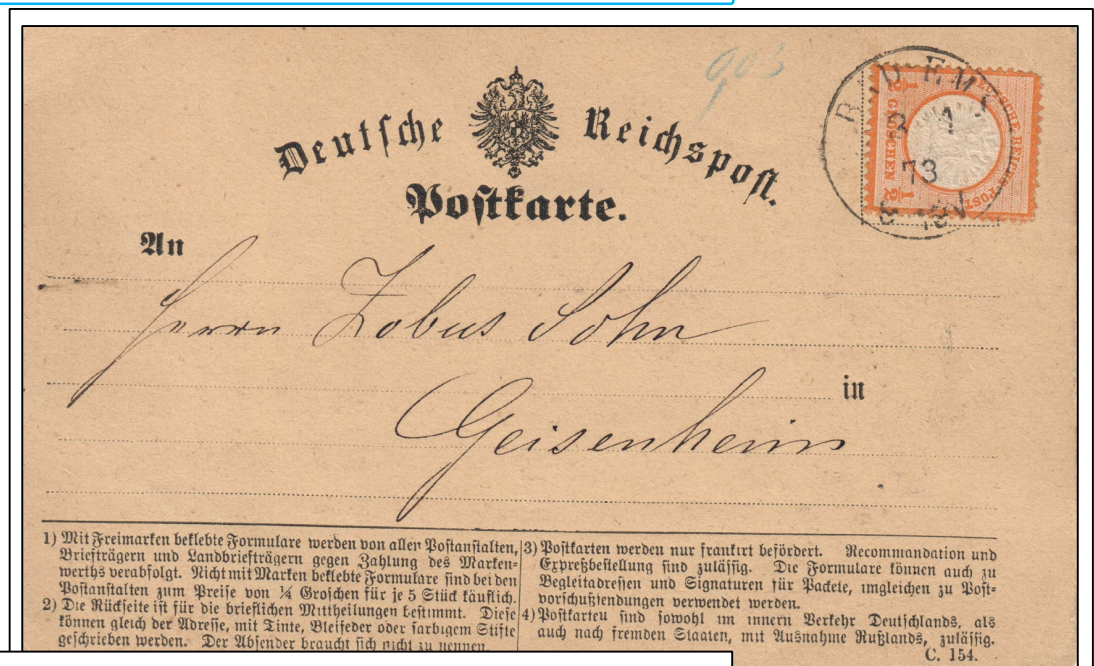 903
Deutsche Reichspost.
Postkarte.
BAD EMS
3 1
73
8-9 N
½ GROSCHEN ½
DEUTSCHE REICHS-POST
An
Herrn Zobus Sohn
in
Geisenheim
1) Mit Freimarken beklebte Formulare werden von allen Postanstalten,
Briefträgern und Landbriefträgern gegen Zahlung des Marken-
werths verabfolgt. Nicht mit Marken beklebte Formulare sind bei den
Postanstalten zum Preise von ¼ Groschen für je 5 Stück käuflich.
2) Die Rückseite ist für die brieflichen Mittheilungen bestimmt. Diese
können gleich der Adresse, mit Tinte, Bleifeder oder farbigem Stifte
geschrieben werden. Der Absender braucht sich nicht zu nennen.
3) Postkarten werden nur frankirt befördert. Recommandation und
Expreßbestellung sind zulässig. Die Formulare können auch zu
Begleitadressen und Signaturen für Packete, imgleichen zu Post-
vorschußsendungen verwendet werden.
4) Postkarten sind sowohl im innern Verkehr Deutschlands, als
auch nach fremden Staaten, mit Ausnahme Rußlands, zulässig.
C. 154.